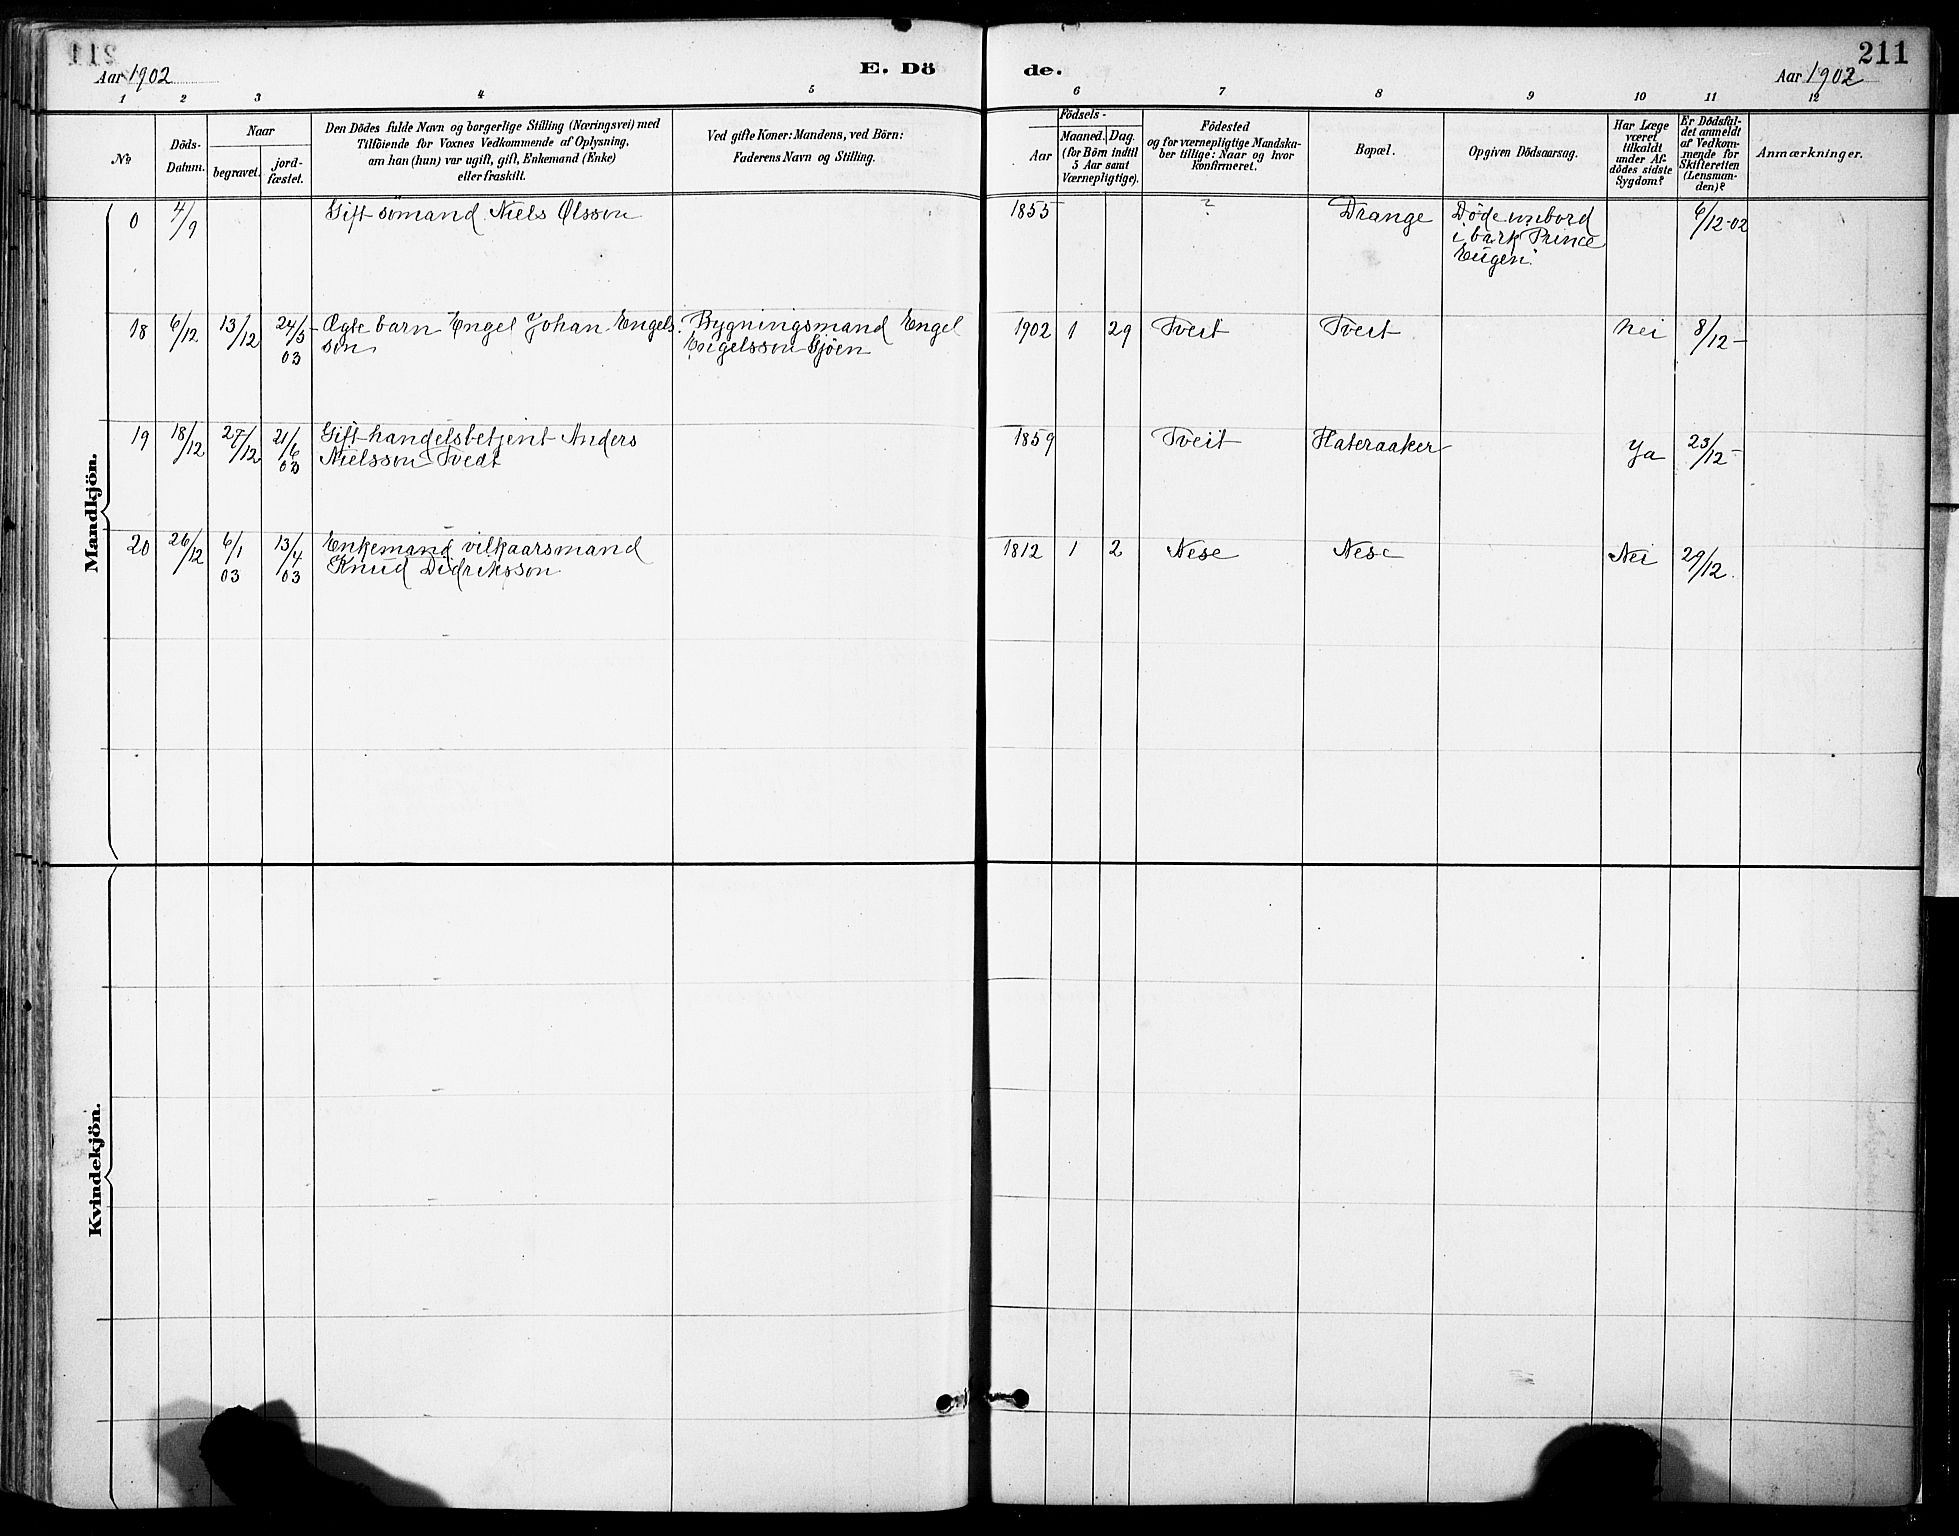 211
Aar 1902
E. Dö
de.
Aar 1902
1 2 3 4 5 6 7 8 9 10 11 12
No
Döds-
Datum.
Naar
begravet.
jord-
fæstet.
Den Dödes fulde Navn og borgerlige Stilling (Næringsvei) med
Tilföiende for Voxnes Vedkommende af Oplysning,
om han (hun) var ugift, gift, Enkemand (Enke)
eller fraskilt.
Ved gifte Koner: Mandens, ved Börn:
Faderens Navn og Stilling.
Födsels-
Aar
Maaned. Dag.
(for Börn indtil
5 Aar samt
Værnepligtige).
Födested
og for værnepligtige Mandska-
ber tillige: Naar og hvor
konfirmeret.
Bopæl.
Opgiven Dödsaarsag.
Har Læge
været
tilkaldt
under Af-
dödes sidste
Sygdom?
Er Dödsfal-
det anmeldt
af Vedkom-
mende for
Skifteretten
(Lensman-
den)?
Anmærkninger.
Mandkjön.
0 4/9 Gift sömand Niels Olsson 1855 ? Drange Döde ombord 6/12-02
i bark Prince
Eugen.
18 6/12 13/12 24/3- Ægte barn Engel Johan Engels- Bygningsmand Engel 1902 1 29 Tveit Tveit Nei 8/12-
03 son Engelsson Gjöen
19 18/12 27/12 21/6 Gift handelsbetjent Anders 1859 Tveit Hateraaker Ja 23/12-
03 Nielsson Tvedt
20 26/12 6/1 13/4 Enkemand vilkaarsmand 1812 1 2 Nese Nese Nei 29/12.
03 03 Knud Didriksson
Kvindekjön.